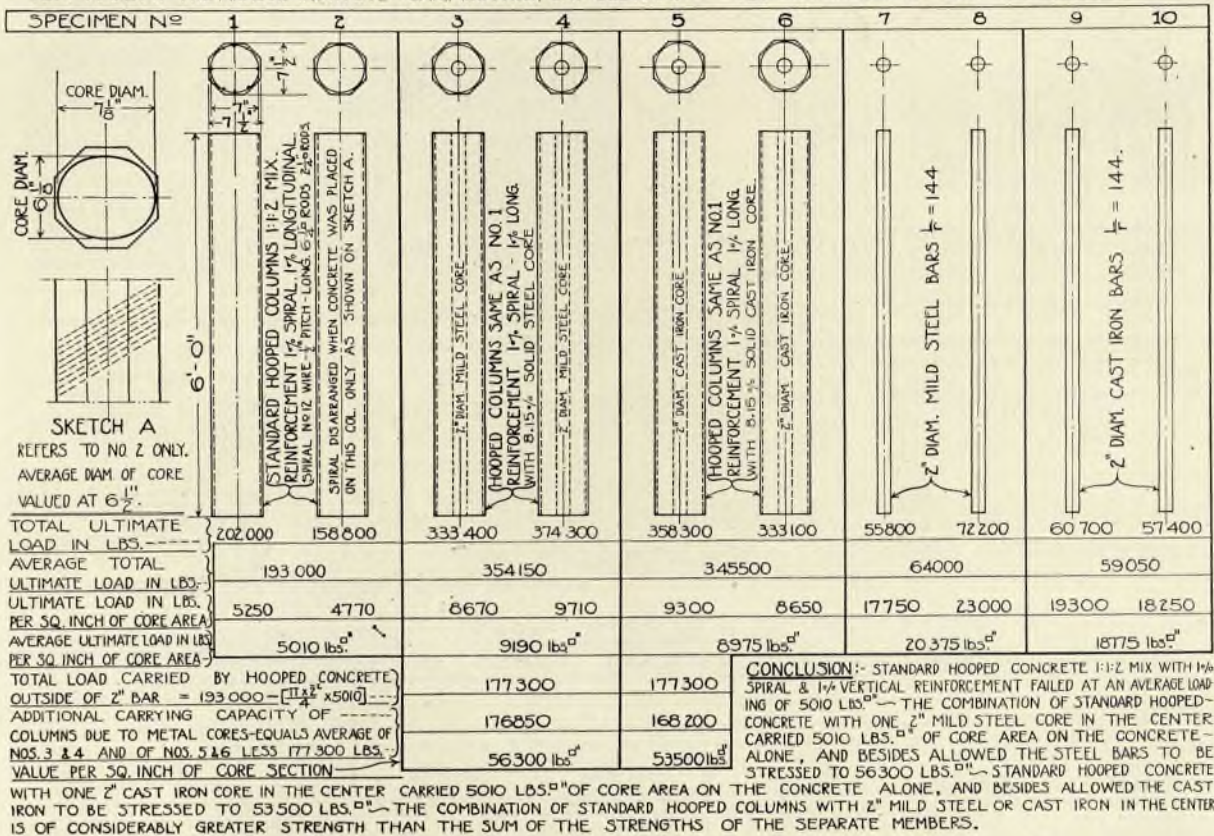 SPECIMEN Nº 1 2 3 4 5 6 7 8 9 10
CORE DIAM.
7 1/8"
CORE DIAM.
6 1/8"
7 1/2"
7"
7 1/2"
6'-0"
STANDARD HOOPED COLUMNS 1:1:2 MIX.
REINFORCEMENT 1% SPIRAL, 1% LONGITUDINAL.
SPIRAL Nº12 WIRE
PITCH-LONG. 6
RODS
RODS.
SPIRAL DISARRANGED WHEN CONCRETE WAS PLACED
ON THIS COL. ONLY AS SHOWN ON SKETCH A.
2" DIAM. MILD STEEL CORE
HOOPED COLUMNS SAME AS NO. 1
REINFORCEMENT 1% SPIRAL - 1% LONG.
WITH 8.15% SOLID STEEL CORE
2" DIAM. MILD STEEL CORE
2" DIAM. CAST IRON CORE
HOOPED COLUMNS SAME AS NO.1
REINFORCEMENT 1% SPIRAL 1% LONG.
WITH 8.15% SOLID CAST IRON CORE.
2" DIAM. CAST IRON CORE
2" DIAM. MILD STEEL BARS l/r = 144
2" DIAM. CAST IRON BARS l/r = 144.
SKETCH A
REFERS TO NO. 2 ONLY.
AVERAGE DIAM OF CORE
VALUED AT 6 1/2".
TOTAL ULTIMATE
LOAD IN LBS.
202000 158800 333400 374300 358300 333100 55800 72200 60700 57400
AVERAGE TOTAL
ULTIMATE LOAD IN LBS.
193000 354150 345500 64000 59050
ULTIMATE LOAD IN LBS.
PER SQ. INCH OF CORE AREA
5250 4770 8670 9710 9300 8650 17750 23000 19300 18250
AVERAGE ULTIMATE LOAD IN LBS
PER SQ INCH OF CORE AREA
5010 lbs.□" 9190 lbs□" 8975 lbs.□" 20375 lbs.□" 18775 lbs.□"
TOTAL LOAD CARRIED BY HOOPED CONCRETE
OUTSIDE OF 2" BAR = 193000-[π×2²/4 ×5010]
177300 177300
ADDITIONAL CARRYING CAPACITY OF
COLUMNS DUE TO METAL CORES-EQUALS AVERAGE OF
NOS. 3 & 4 AND OF NOS. 5&6 LESS 177300 LBS.
176850 168200
VALUE PER SQ. INCH OF CORE SECTION
56300 lbs□" 53500 lbs□"
CONCLUSION:- STANDARD HOOPED CONCRETE 1:1:2 MIX WITH 1%
SPIRAL & 1% VERTICAL REINFORCEMENT FAILED AT AN AVERAGE LOAD-
ING OF 5010 LBS.□"~ THE COMBINATION OF STANDARD HOOPED-
CONCRETE WITH ONE 2" MILD STEEL CORE IN THE CENTER
CARRIED 5010 LBS.□" OF CORE AREA ON THE CONCRETE-
ALONE, AND BESIDES ALLOWED THE STEEL BARS TO BE
STRESSED TO 56300 LBS.□"~ STANDARD HOOPED CONCRETE
WITH ONE 2" CAST IRON CORE IN THE CENTER CARRIED 5010 LBS.□" OF CORE AREA ON THE CONCRETE ALONE, AND BESIDES ALLOWED THE CAST
IRON TO BE STRESSED TO 53500 LBS.□"~ THE COMBINATION OF STANDARD HOOPED COLUMNS WITH 2" MILD STEEL OR CAST IRON IN THE CENTER
IS OF CONSIDERABLY GREATER STRENGTH THAN THE SUM OF THE STRENGTHS OF THE SEPARATE MEMBERS.